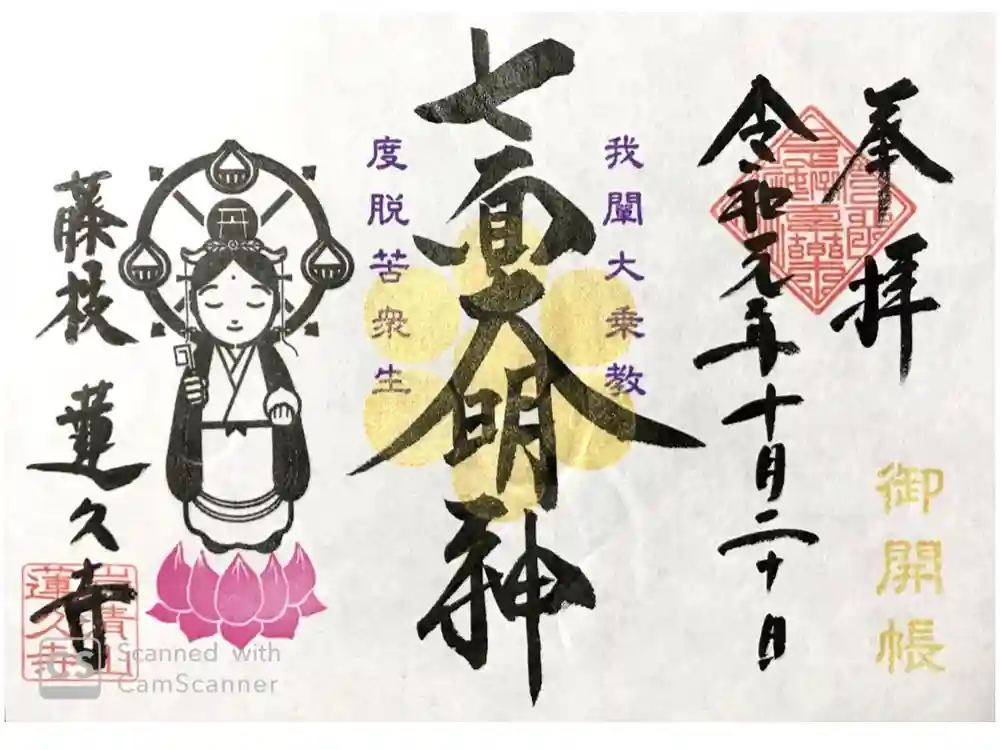 奉拝
御開帳
令和元年十月二十日
我闡大乗教
七面大明神
度脱苦衆生
藤枝 蓮久寺
蓮久寺
Scanned with
CS CamScanner